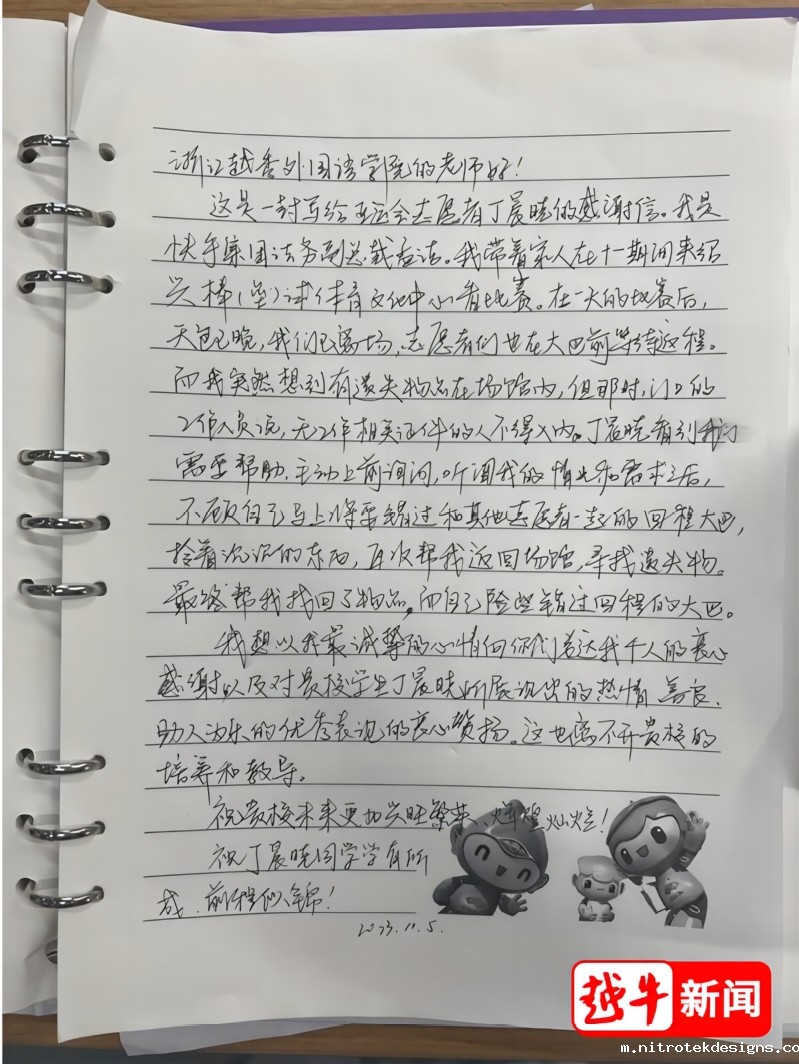 浙江越秀外国语学院的老师好！
这是一封写给亚运会志愿者丁晨晓的感谢信。我是
快手集团法务副总裁 。我带着家人在十一期间来绍
兴棒（垒）球体育文化中心看比赛。在一天的比赛后，
天色已晚，我们已离场，志愿者们也在大巴前等待返程。
而我突然想到有遗失物品在场馆内，但那时，门口的
工作人员说，无工作相关证件的人不得入内。丁晨晓看到我们
需要帮助，主动上前询问，听闻我的情况和需求之后，
不顾自己马上将要错过和其他志愿者一起的回程大巴，
拎着沉沉的东西，再次帮我返回场馆，寻找遗失物。
最终帮我找回了物品，而自己险些错过回程的大巴。
我想以我最诚挚的心情向你们表达我个人的衷心
感谢以及对贵校学生丁晨晓所展现出的热情、善良、
助人为乐的优秀表现的衷心赞扬。这也离不开贵校的
培养和教导。
祝贵校未来更加兴旺繁荣、辉煌灿烂！
祝丁晨晓同学学有所
成、前程似锦！
2023.11.5.
越牛新闻
m.nitrotekdesigns.co